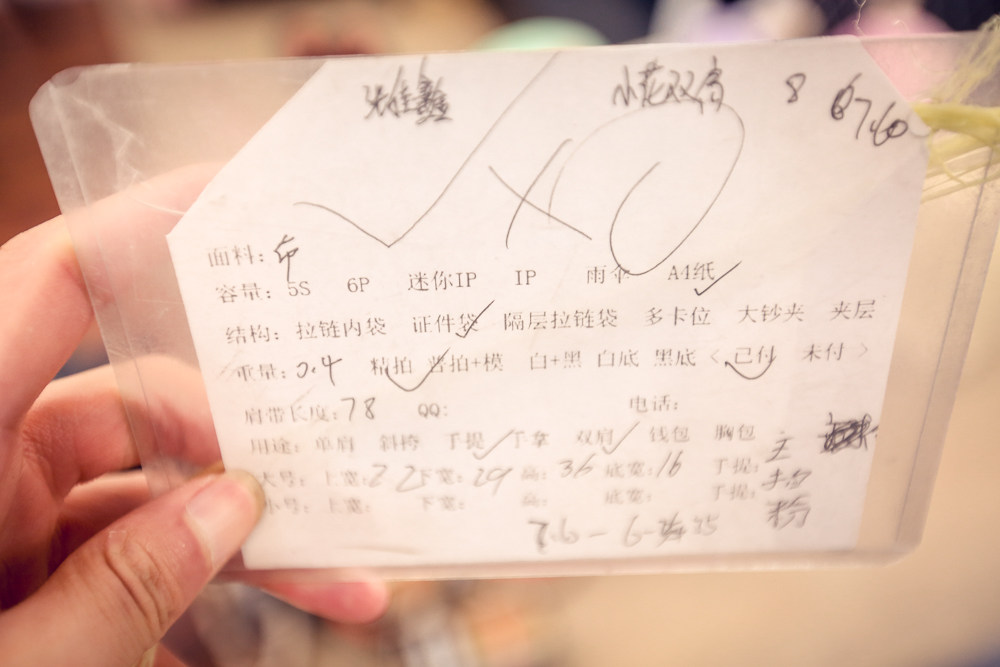 小花双肩 8 6760
面料:布
容量:5S 6P 迷你IP IP 雨伞 A4纸
结构:拉链内袋 证件袋 隔层拉链袋 多卡位 大钞夹 夹层
重量:0.4 精拍 普拍+模 白+黑 白底 黑底 < 已付 未付 >
肩带长度:78 QQ: 电话:
用途:单肩 斜挎 手提 手拿 双肩 钱包 胸包
大号:上宽:22 下宽:29 高:36 底宽:16 手提: 主
小号:上宽: 下宽: 高: 底宽: 手提:
粉